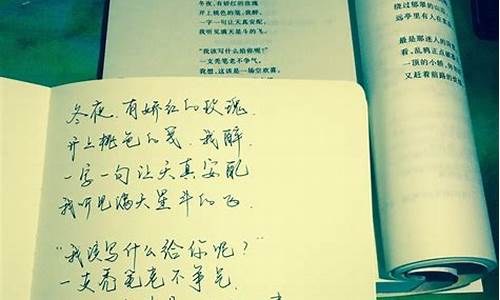 冬夜,有娇红的玫瑰
开上桃色的笺,我醉,
一字一句让天真安配,
我听见满天星斗的飞。
"我该写什么给你呢?"
一支秃笔老不争气。
我想,这该是一场空欢喜。
绕过郁翠的山
远亭里有人在
最是那迷人的
看,乱鸦正点破
一顶的小轿,
又赶着前路的
冬夜,有娇红的玫瑰,
开上桃色的笺,我醉,
一字一句让天真安配
我听见满天星斗的飞,
"我该写什么给你呢?"
一支秃笔老不争气,